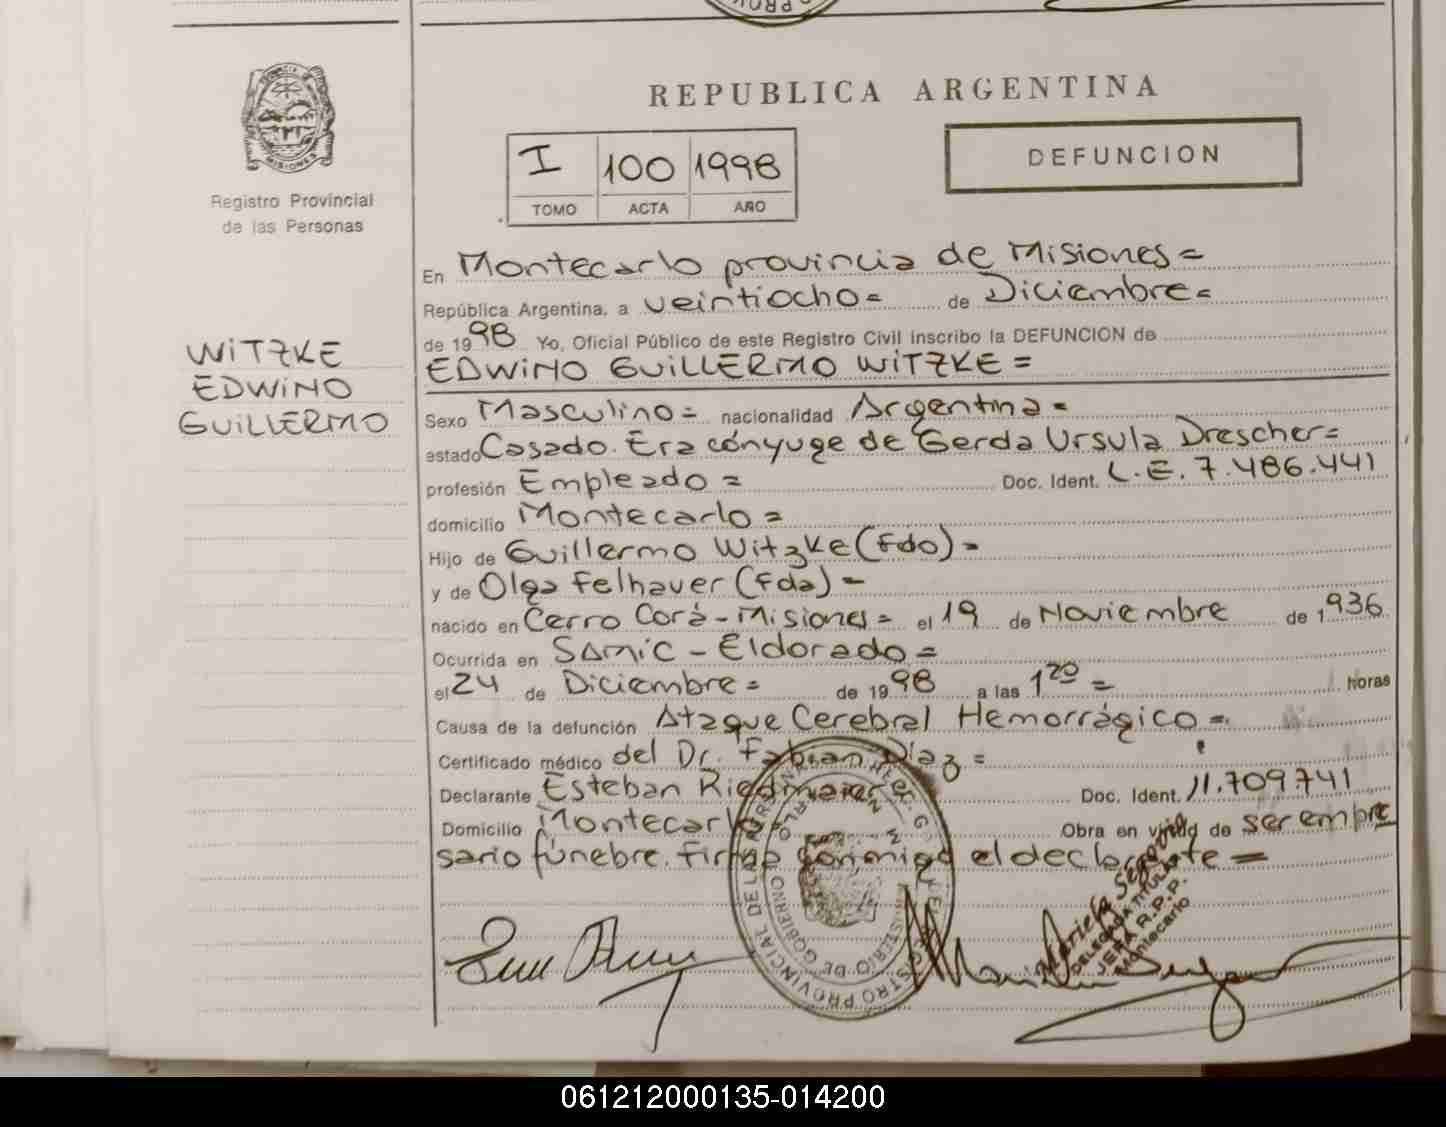 REPUBLICA ARGENTINA
MISIONES
Registro Provincial
de las Personas
I 100 1998
TOMO ACTA AÑO
DEFUNCION
WITZKE
EDWINO
GUILLERMO
En Montecarlo provincia de Misiones=
República Argentina, a veintiocho= de Diciembre=
de 1998 Yo, Oficial Público de este Registro Civil inscribo la DEFUNCION de
EDWINO GUILLERMO WITZKE =
Sexo Masculino= nacionalidad Argentina=
estado Casado. Era cónyuge de Gerda Ursula Drescher=
profesión Empleado = Doc. Ident. L.E. 7.486.441
domicilio Montecarlo =
Hijo de Guillermo Witzke (Fdo) =
y de Olga Felhaver (Fda) =
nacido en Cerro Corá - Misiones = el 19 de Noviembre de 1936
Ocurrida en SAMIC - Eldorado =
el 24 de Diciembre = de 1998 a las 1 20 = horas
Causa de la defunción Ataque Cerebral Hemorrágico =
Certificado médico del Dr. Fabian Diaz =
Declarante Esteban Riedmaier Doc. Ident. 11.709.741
Domicilio Montecarlo Obra en virtud de ser empre
sario fúnebre. Firma conmigo el declarante =
Mariela Segovia
DELEGADA TITULAR
JEFA R.P.P.
Montecarlo
061212000135-014200